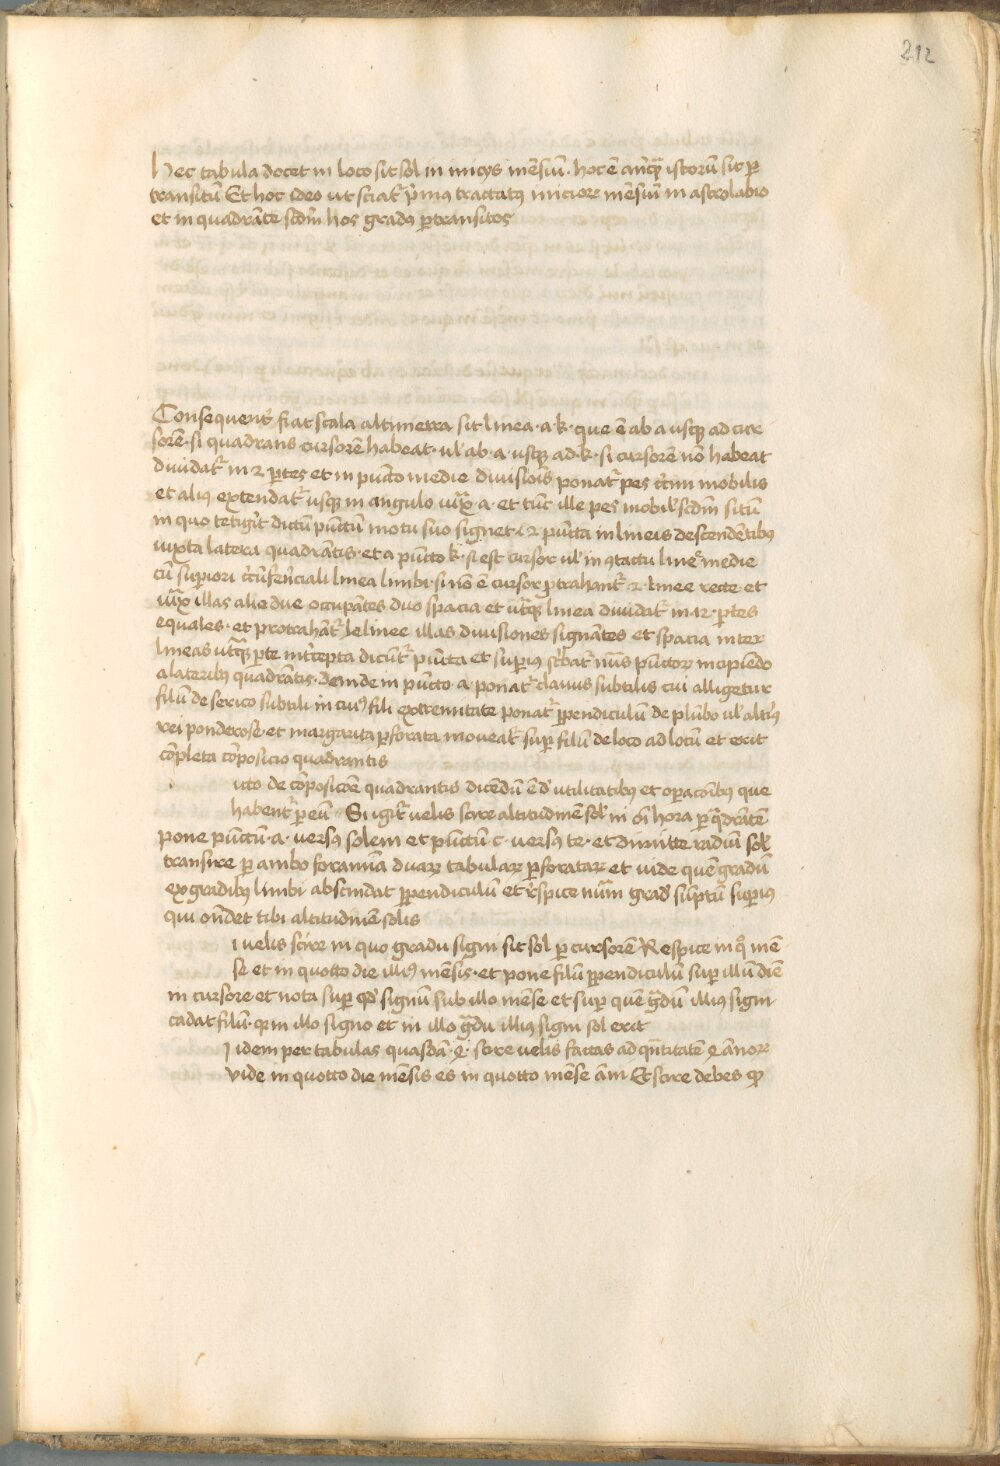 212
Hec tabula docet in loco sit sol in inicijs mẽsiũ · hoc ẽ istorũ sit ꝑ
transitũ Et hoc ideo ut sciat͛ tractatꝰ inicioꝝ mẽsiũ in astrolabio
et in quadrãte scd̃m hos gradꝰ ꝑtransitos
Consequent͛ fiat scala altimetra sit linea · a · k · que ẽ ab a usqꝫ ad cur
sorẽ · si quadrans cursorẽ habeat · ul' ab · a · usqꝫ ad · k · si cursorẽ nõ habeat
diuidat͛ in 2 ꝑtes et in pũcto medie diuisiõis ponat͛ pes mobilis
et aliꝰ extendat͛ usqꝫ in angulo iux͛ · a · et tũc ille pes mobil' scd̃m sitũ
in quo tetig͛it dictũ pũctũ motu suo signet · 2 pũcta in lineis descendẽtibꝰ
iuxta latera quadrãtis · et a pũcto k · si est cursor ul' in ꝯtactu linee medie
cũ supiori linea limbi · si nõ ẽ cursor ꝓtrahant͛ · 2 · linee recte et
iux͛ illas alie due occupãtes duo spacia et ut͛qꝫ linea diuidat͛ in 12 · ꝑtes
equales · et protrahãt͛ linee illas diuisiones signãtes et spacia inter
lineas ut͛qꝫ ꝑte int͛cepta dicũt͛ pũcta et suꝑius sc͛bat͛ nũs pũctoꝝ incipiẽdo
a lateribꝰ quadrãtis · deinde in pũcto · a · ponat͛ clauus subtilis cui alligetur
filũ de serico subtili in cuiꝰ fili extremitate ponat͛ ꝑpendiculũ de plũbo ul' alt͛iꝰ
rei ponderose · et margarita ꝑforata moueat͛ suꝑ filũ de loco ad locũ et erit
cõpleta cõposicio quadrantis
icto de cõposicõe quadrantis dicẽdũ ẽ d' utilitatibꝰ et oꝑacõibꝰ que
habent͛ ꝑ eũ Si igit͛ velis scire altitudinẽ sol' in oĩ hora ꝑ q̃drãtẽ
pone pũctũ · a · versꝰ solem et pũctũ c · versꝰ te · et dimitte radiũ sol'
transire ꝑ ambo foramĩa duaꝝ tabulaꝝ ꝑforataꝝ et vide quẽ gradũ
ex gradibꝰ limbi abscindat ꝑpendiculũ et r͛spice num͛ grad' sũptũ suꝑius
qui oñdet tibi altitudinẽ solis
i velis scire in quo gradu signi sit sol ꝑ cursorẽ Respice in qͦ mẽ
se et in quotto die illiꝰ mẽsis · et pone filũ ꝑpendiculũ suꝑ illũ diẽ
in cursore et nota suꝑ qd' signũ sub illo mẽse et suꝑ quẽ g͛dũ illiꝰ signi
cadat filũ · qm in illo signo et in illo g͛du illiꝰ signi sol erit
I idem per tabulas quasdã · scire velis factas ad qñtitatẽ ãnoꝝ
vide in quotto die mẽsis es in quotto mẽse ãni Et scire debes ꝙ